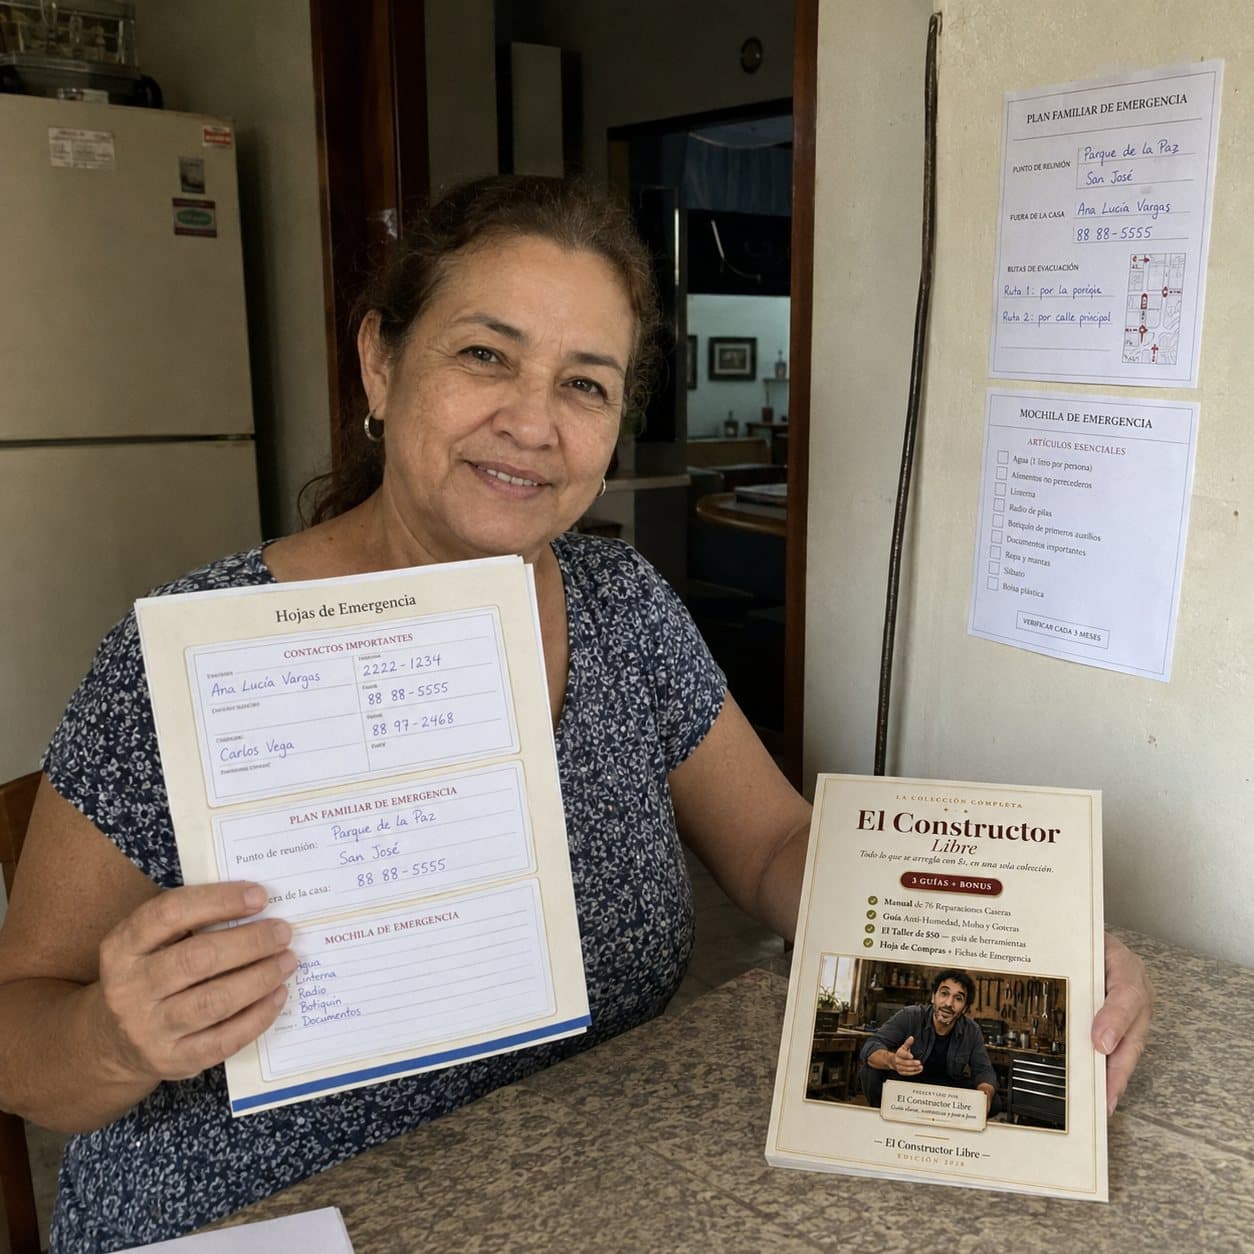 Hojas de Emergencia
CONTACTOS IMPORTANTES
Ana Lucía Vargas
2222-1234
88 88-5555
Carlos Vega
88 97-2468
PLAN FAMILIAR DE EMERGENCIA
Punto de reunión: Parque de la Paz
San José
era de la casa: 88 88-5555
MOCHILA DE EMERGENCIA
Agua
Linterna
Radio
Botiquín
Documentos
PLAN FAMILIAR DE EMERGENCIA
PUNTO DE REUNIÓN Parque de la Paz
San José
FUERA DE LA CASA Ana Lucía Vargas
88 88-5555
RUTAS DE EVACUACIÓN
Ruta 1: por la
Ruta 2: por calle principal
MOCHILA DE EMERGENCIA
ARTÍCULOS ESENCIALES
Agua (1 litro por persona)
Alimentos no perecederos
Linterna
Radio de pilas
Botiquín de primeros auxilios
Documentos importantes
Ropa y mantas
Silbato
Bolsa plástica
VERIFICAR CADA 3 MESES
LA COLECCIÓN COMPLETA
El Constructor
Libre
Todo lo que se arregla con $1, en una sola colección.
3 GUÍAS + BONUS
Manual de 76 Reparaciones Caseras
Guía Anti-Humedad, Moho y Goteras
El Taller de $50 — guía de herramientas
Hoja de Compras + Fichas de Emergencia
PRESENTADO POR
El Constructor Libre
— El Constructor Libre —
EDICIÓN 2028